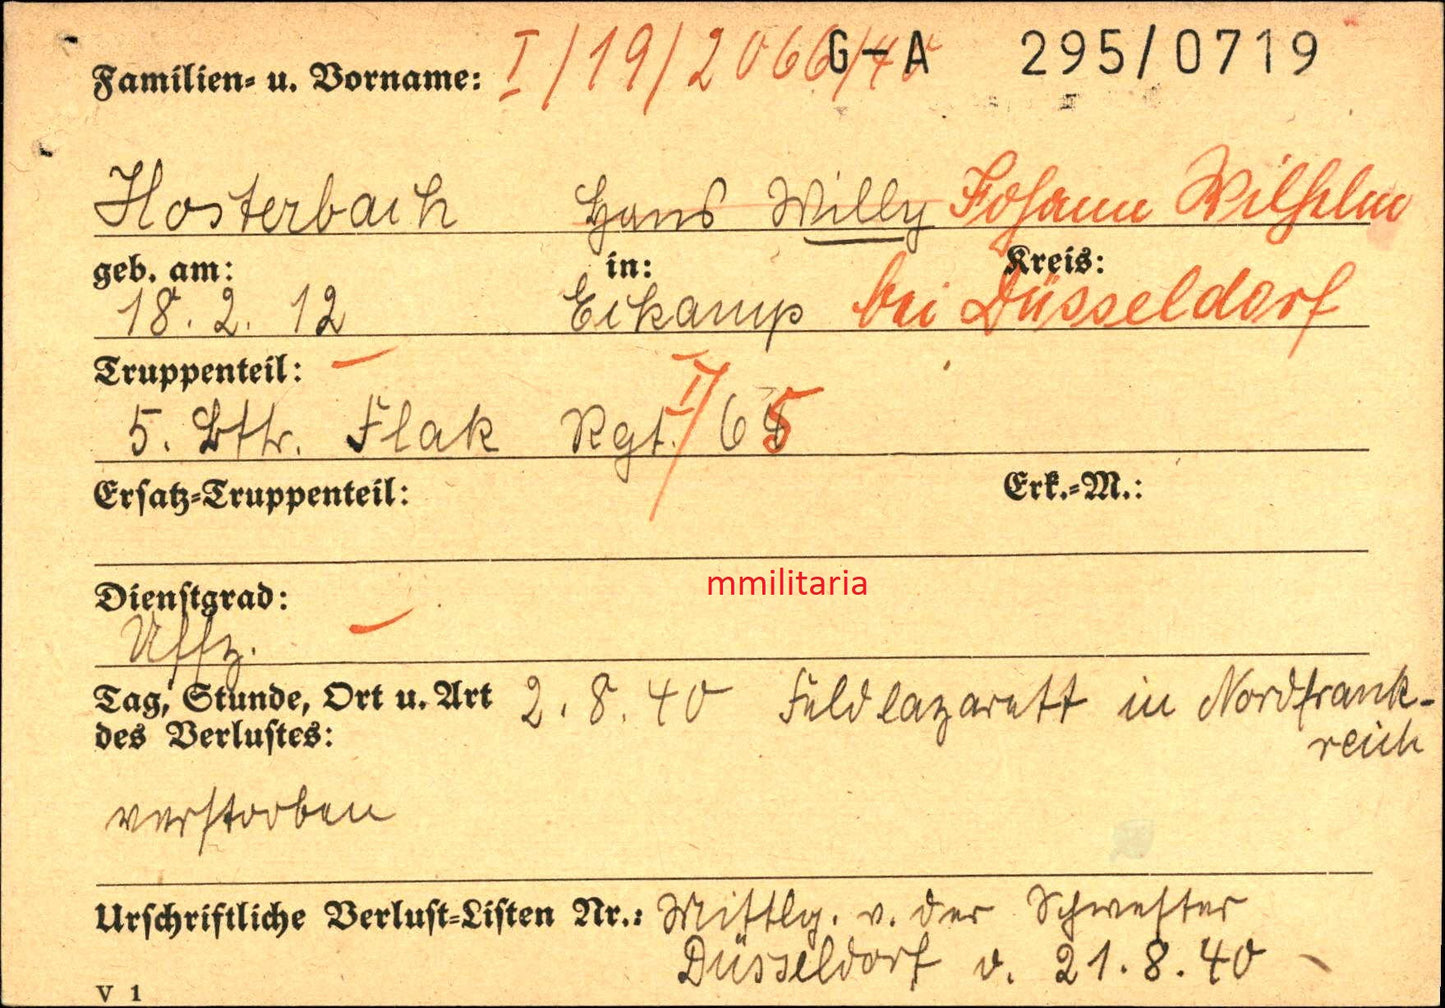 Familien- u. Vorname: I/19/2066/40 G-A 295/0719
Hosterbach Hans Willy Johann Wilhelm
geb. am: in: Kreis:
18. 2. 12 Eckamp bei Düsseldorf
Truppenteil:
5. Bttr. Flak Rgt. I/ 65
Ersatz-Truppenteil: Erk.-M.:
Dienstgrad:
Uffz.
mmilitaria
Tag, Stunde, Ort u. Art 2. 8. 40 Feldlazarett in Nordfrank-
des Verlustes: reich
verstorben
Urschriftliche Verlust-Listen Nr.: Mittlg. v. der Schwester
Düsseldorf v. 21. 8. 40
V 1